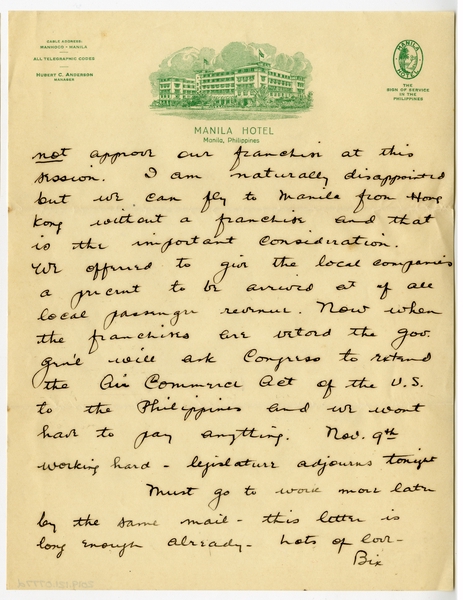 CABLE ADDRESS:
MANHOCO - MANILA
ALL TELEGRAPHIC CODES
HUBERT C. ANDERSON
MANAGER
MANILA HOTEL
THE
SIGN OF SERVICE
IN THE
PHILIPPINES
MANILA HOTEL
Manila, Philippines
not approve our franchise at this
session. I am naturally disappointed
but we can fly to Manila from Hong
Kong without a franchise and that
is the important consideration.
We offered to give the local companies
a precent to be arrived at of all
local passenger revenue. Now when
the franchises are vetoed the Gov.
Gen'l will ask Congress to extend
the Air Commerce Act of the U.S.
to the Philippines and we wont
have to pay anything. Nov. 9th
working hard - legislature adjourns tonight
Must go to work more later
by the same mail - this letter is
long enough already - Lots of love -
Bix